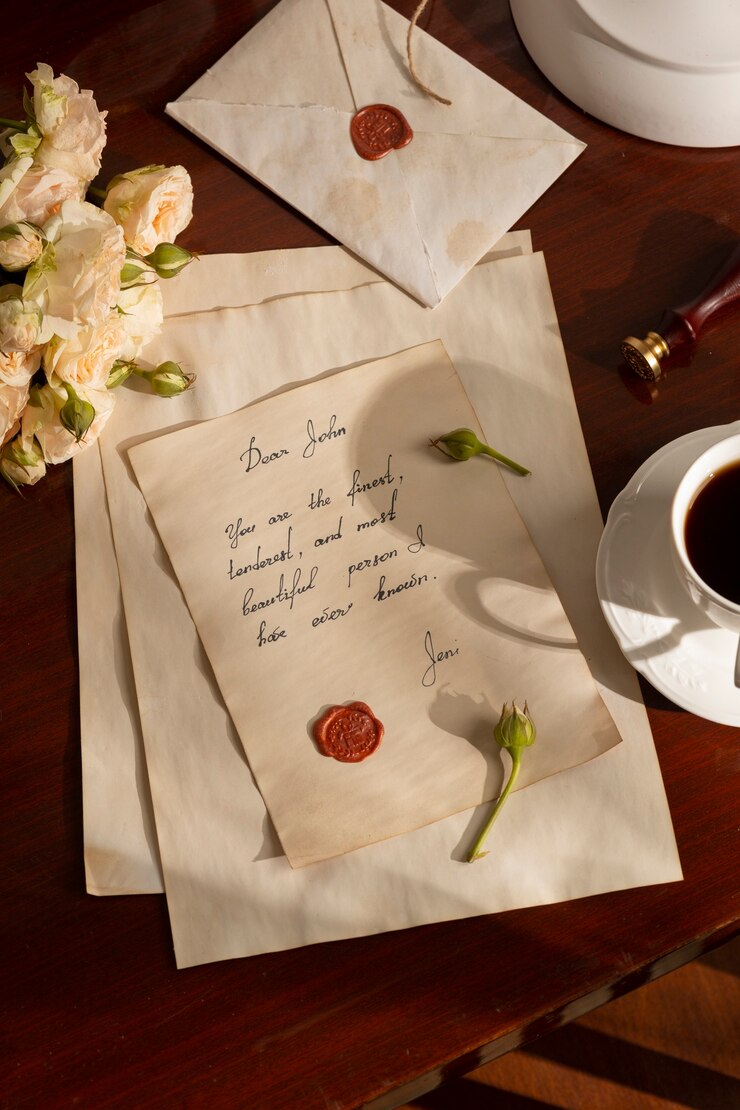 Dear John
You are the finest,
tenderest, and most
beautiful person I
have ever known.
Jeni